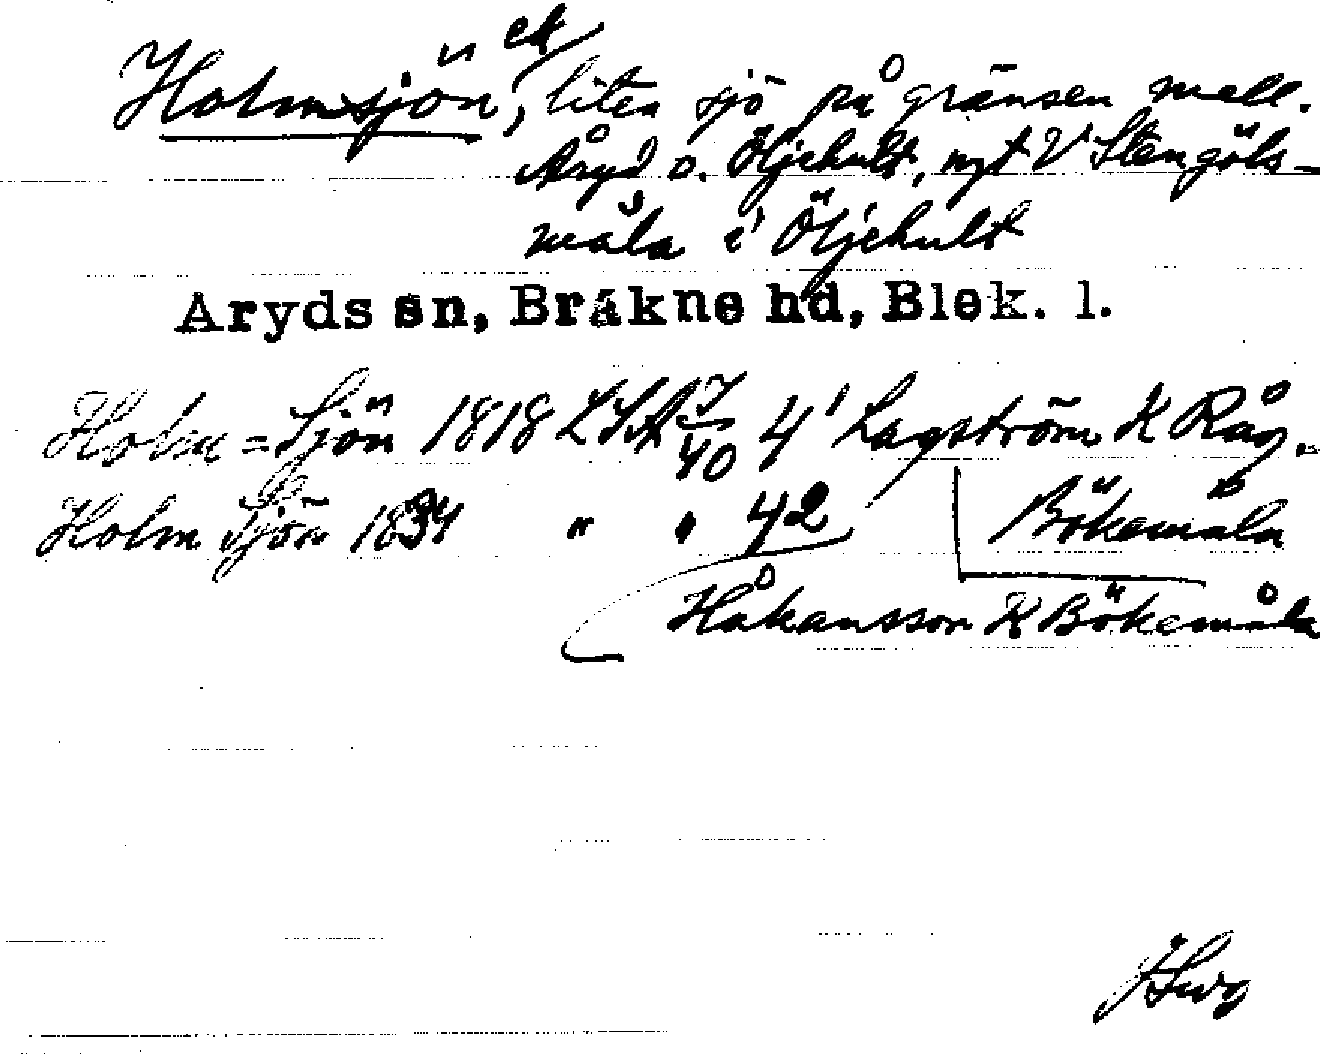 Holmsjön, ek liten sjö på gränsen mell.
Åryd o. Öljehult, nyt V Stengöls-
måla i Öljehult
Åryds sn, Bräkne hd, Blek. l.
Holm=Sjön 1818 LSA 7/40 4' Lagström K Råg.
Holm Sjön 1834 " " 42 Bökemåla
Håkansson K Bökemåla